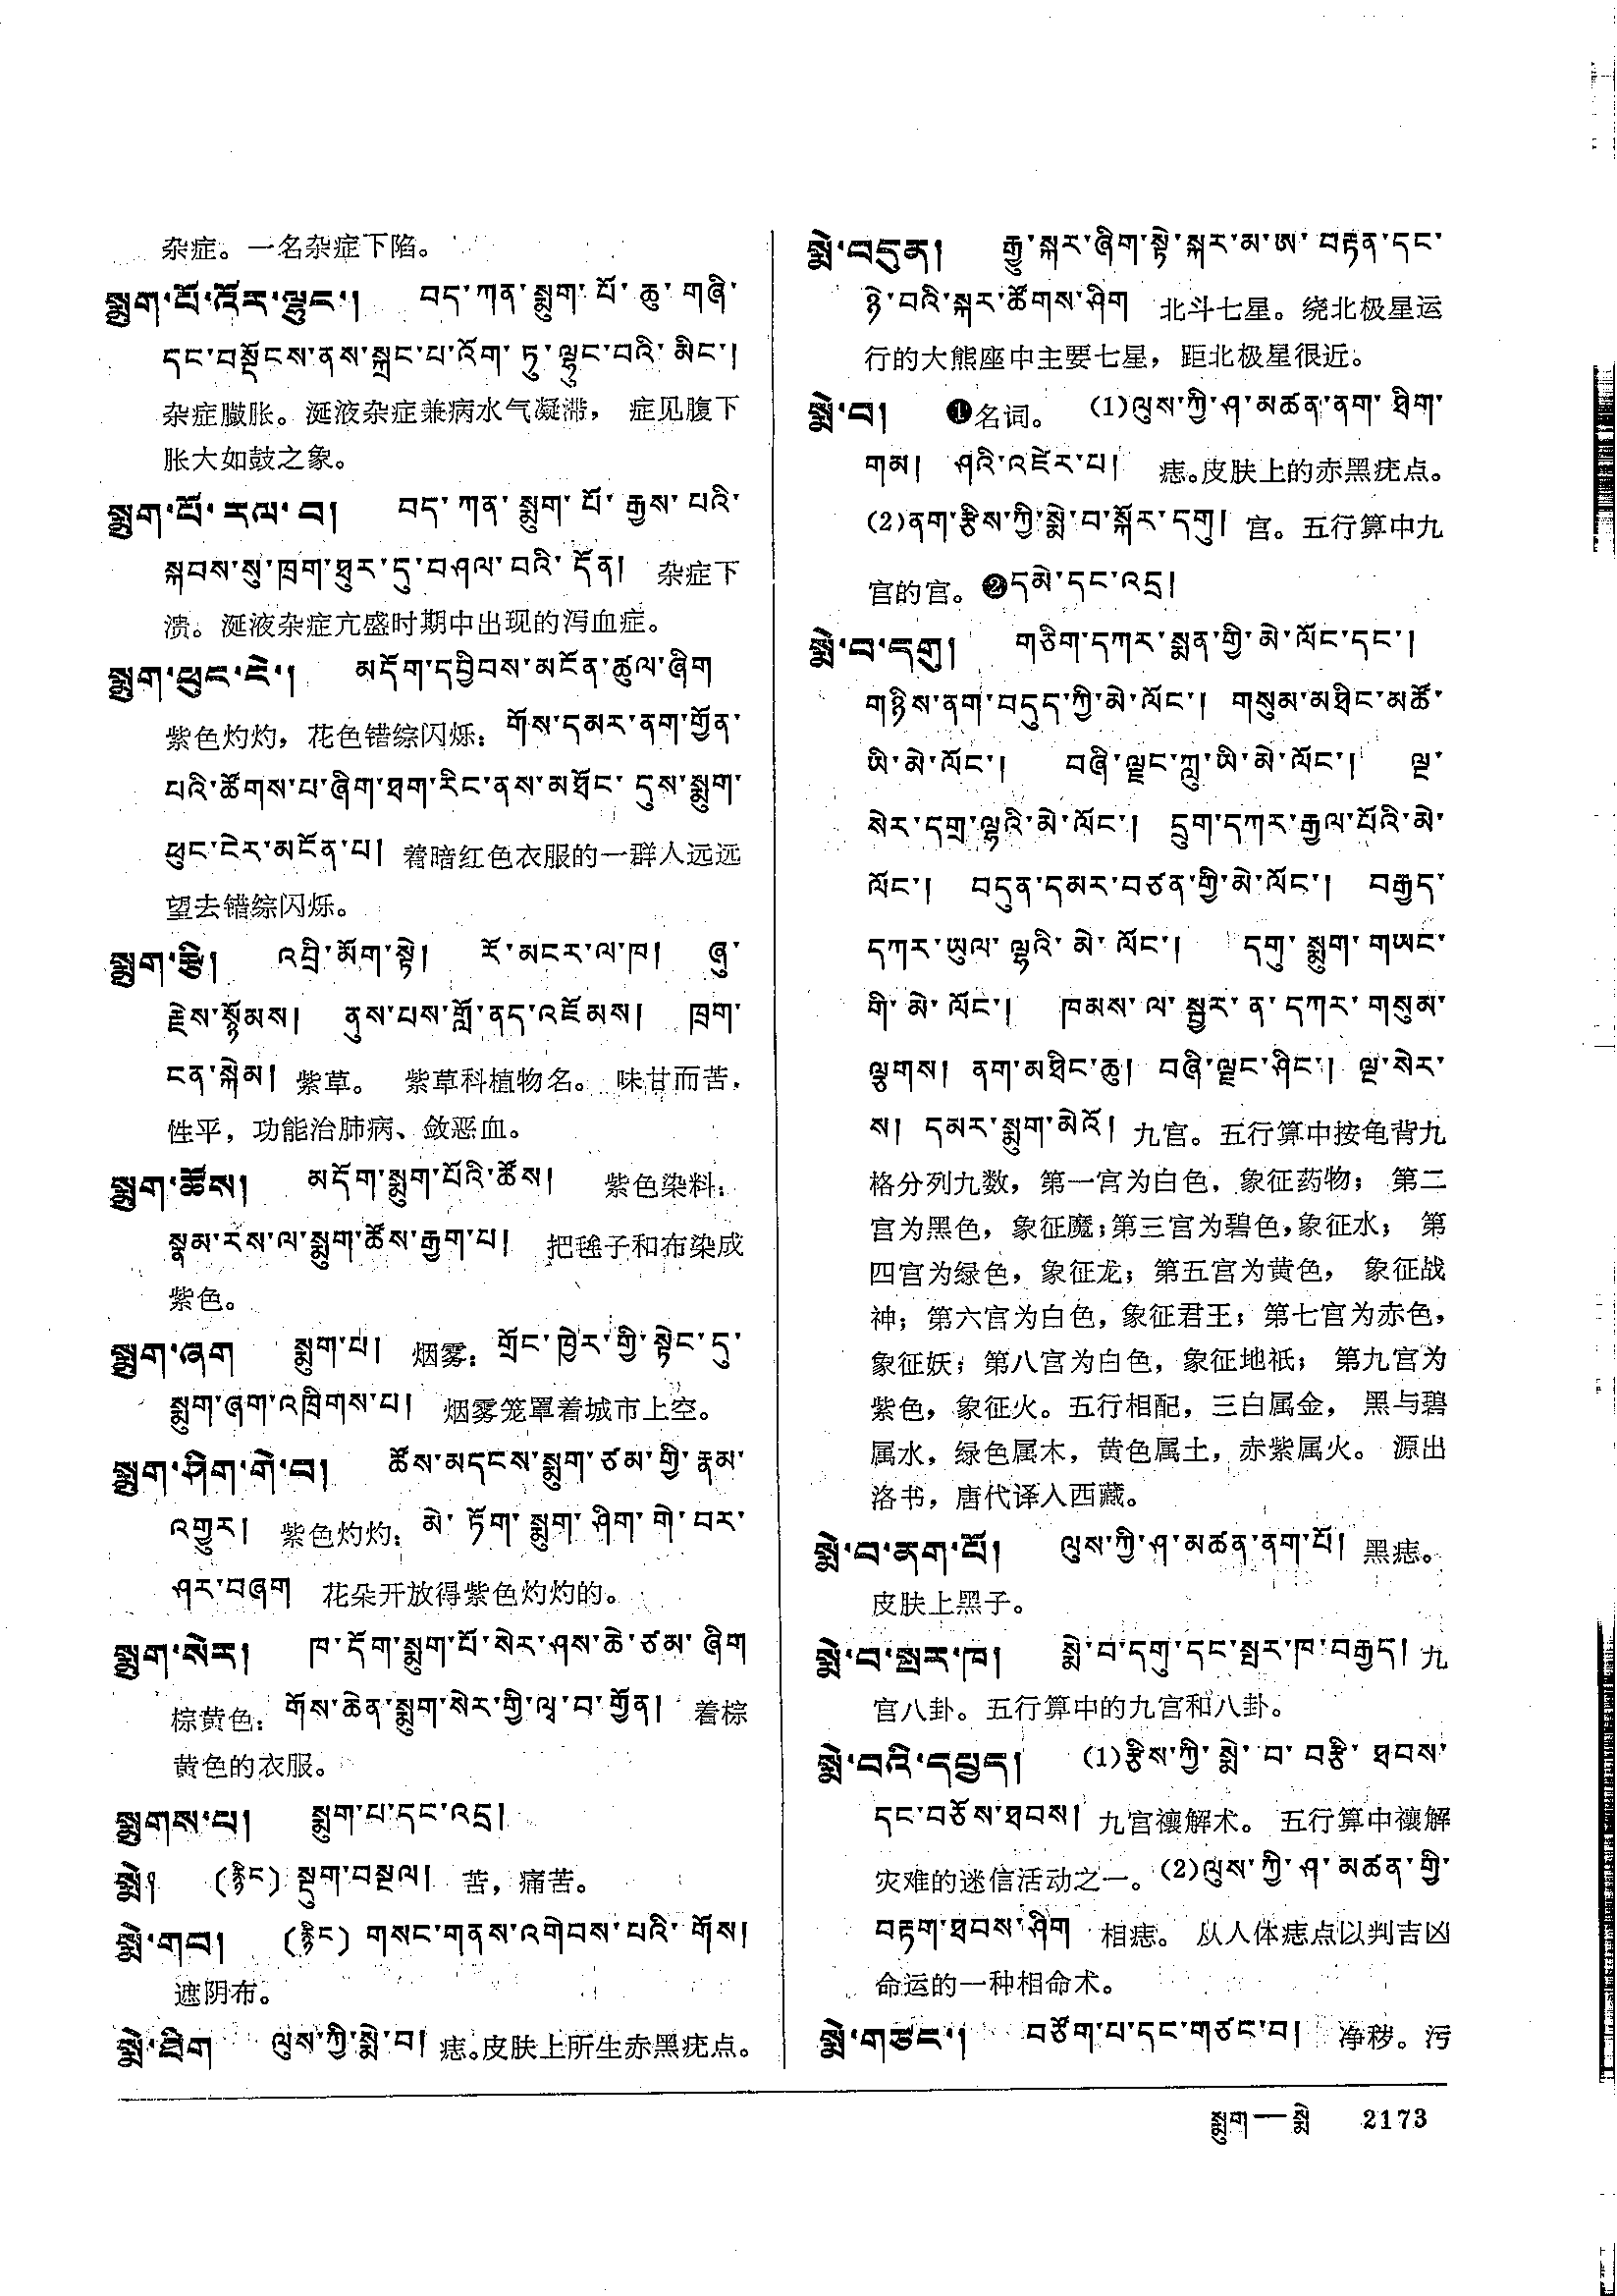 杂症。一名杂症下陷。
སྨུག་པོ་འོར་ལྷུང་། བད་ཀན་སྨུག་པོ་ཆུ་གཞི་
དང་བསྡོངས་ནས་སྐྲང་པ་འོག་ཏུ་ལྷུང་བའི་མིང་།
杂症臌胀。涎液杂症兼病水气凝滞，症见腹下
胀大如鼓之象。
སྨུག་པོ་རལ་བ། བད་ཀན་སྨུག་པོ་རྒྱས་པའི་
སྐབས་སུ་ཁྲག་ཐུར་དུ་བཤལ་བའི་དོན། 杂症下
溃。涎液杂症亢盛时期中出现的泻血症。
སྨུག་ཕུང་ངེ་། མདོག་དབྱིབས་མངོན་ཚུལ་ཞིག
紫色灼灼，花色错综闪烁：གོས་དམར་ནག་གྱོན་
པའི་ཚོགས་པ་ཞིག་ཐག་རིང་ནས་མཐོང་དུས་སྨུག་
ཕུང་ངེར་མངོན་པ། 着暗红色衣服的一群人远远
望去错综闪烁。
སྨུག་རྩི། འབྲི་མོག་སྟེ། རོ་མངར་ལ་ཁ། ཞུ་
རྗེས་སྙོམས། ནུས་པས་གློ་ནད་འཇོམས། ཁྲག་
ངན་སྐེམ། 紫草。 紫草科植物名。味甘而苦，
性平，功能治肺病、敛恶血。
སྨུག་ཚོས། མདོག་སྨུག་པོའི་ཚོས། 紫色染料：
སྣམ་རས་ལ་སྨུག་ཚོས་རྒྱག་པ། 把氆子和布染成
紫色。
སྨུག་ཞག སྨུག་པ། 烟雾：གྲོང་ཁྱེར་གྱི་སྟེང་དུ་
སྨུག་ཞག་འཁྲིགས་པ། 烟雾笼罩着城市上空。
སྨུག་ཤིག་གེ་བ། ཚོས་མདངས་སྨུག་ཙམ་གྱི་རྣམ་
འགྱུར། 紫色灼灼：མེ་ཏོག་སྨུག་ཤིག་གེ་བར་
ཤར་བཞག 花朵开放得紫色灼灼的。
སྨུག་སེར། ཁ་དོག་སྨུག་པོ་སེར་ཤས་ཆེ་ཙམ་ཞིག
棕黄色：གོས་ཆེན་སྨུག་སེར་གྱི་ལྭ་བ་གྱོན། 着棕
黄色的衣服。
སྨུགས་པ། སྨུག་པ་དང་འདྲ།
སྨེ། (རྙིང) སྡུག་བསྔལ། 苦，痛苦。
སྨེ་གབ། (རྙིང) གསང་གནས་འགེབས་པའི་གོས།
遮阴布。
སྨེ་ཐིག ལུས་ཀྱི་སྨེ་བ། 痣。皮肤上所生赤黑疣点。
སྨེ་བདུན། རྒྱུ་སྐར་ཞིག་སྟེ་སྐར་མ་ཨ་བརྟན་དང་
ཉེ་བའི་སྐར་ཚོགས་ཤིག 北斗七星。绕北极星运
行的大熊座中主要七星，距北极星很近。
སྨེ་བ། ❶名词。 (1)ལུས་ཀྱི་ཤ་མཚན་ནག་ཐིག་
གམ། ཤའི་འཛེར་པ། 痣。皮肤上的赤黑疣点。
(2)ནག་རྩིས་ཀྱི་སྨེ་བ་སྐོར་དགུ། 宫。五行算中九
宫的宫。❷དམེ་དང་འདྲ།
སྨེ་བ་དགུ། གཅིག་དཀར་སྨན་གྱི་མེ་ལོང་དང་།
གཉིས་ནག་བདུད་ཀྱི་མེ་ལོང་། གསུམ་མཐིང་མཚོ་
ཡི་མེ་ལོང་། བཞི་ལྗང་ཀླུ་ཡི་མེ་ལོང་། ལྔ་
སེར་དགྲ་ལྷའི་མེ་ལོང་། དྲུག་དཀར་རྒྱལ་པོའི་མེ་
ལོང་། བདུན་དམར་བཙན་གྱི་མེ་ལོང་། བརྒྱད་
དཀར་ཡུལ་ལྷའི་མེ་ལོང་། དགུ་སྨུག་གཡང་
གི་མེ་ལོང་། ཁམས་ལ་སྦྱར་ན་དཀར་གསུམ་
ལྕགས། ནག་མཐིང་ཆུ། བཞི་ལྗང་ཤིང་། ལྔ་སེར་
ས། དམར་སྨུག་མེའོ། 九宫。五行算中按龟背九
格分列九数，第一宫为白色，象征药物；第二
宫为黑色，象征魔；第三宫为碧色，象征水；第
四宫为绿色，象征龙；第五宫为黄色，象征战
神；第六宫为白色，象征君王；第七宫为赤色，
象征妖；第八宫为白色，象征地祇；第九宫为
紫色，象征火。五行相配，三白属金，黑与碧
属水，绿色属木，黄色属土，赤紫属火。源出
洛书，唐代译入西藏。
སྨེ་བ་ནག་པོ། ལུས་ཀྱི་ཤ་མཚན་ནག་པོ། 黑痣。
皮肤上黑子。
སྨེ་བ་སྤར་ཁ། སྨེ་བ་དགུ་དང་སྤར་ཁ་བརྒྱད། 九
宫八卦。五行算中的九宫和八卦。
སྨེ་བའི་དཔྱད། (1)རྩིས་ཀྱི་སྨེ་བ་བརྩི་ཐབས་
དང་བཅོས་ཐབས། 九宫禳解术。五行算中禳解
灾难的迷信活动之一。(2)ལུས་ཀྱི་ཤ་མཚན་གྱི་
བརྟག་ཐབས་ཤིག 相痣。从人体痣点以判吉凶
命运的一种相命术。
སྨེ་གཙང་། བཙོག་པ་དང་གཙང་བ། 净秽。污
སྨུག—སྨེ 2173